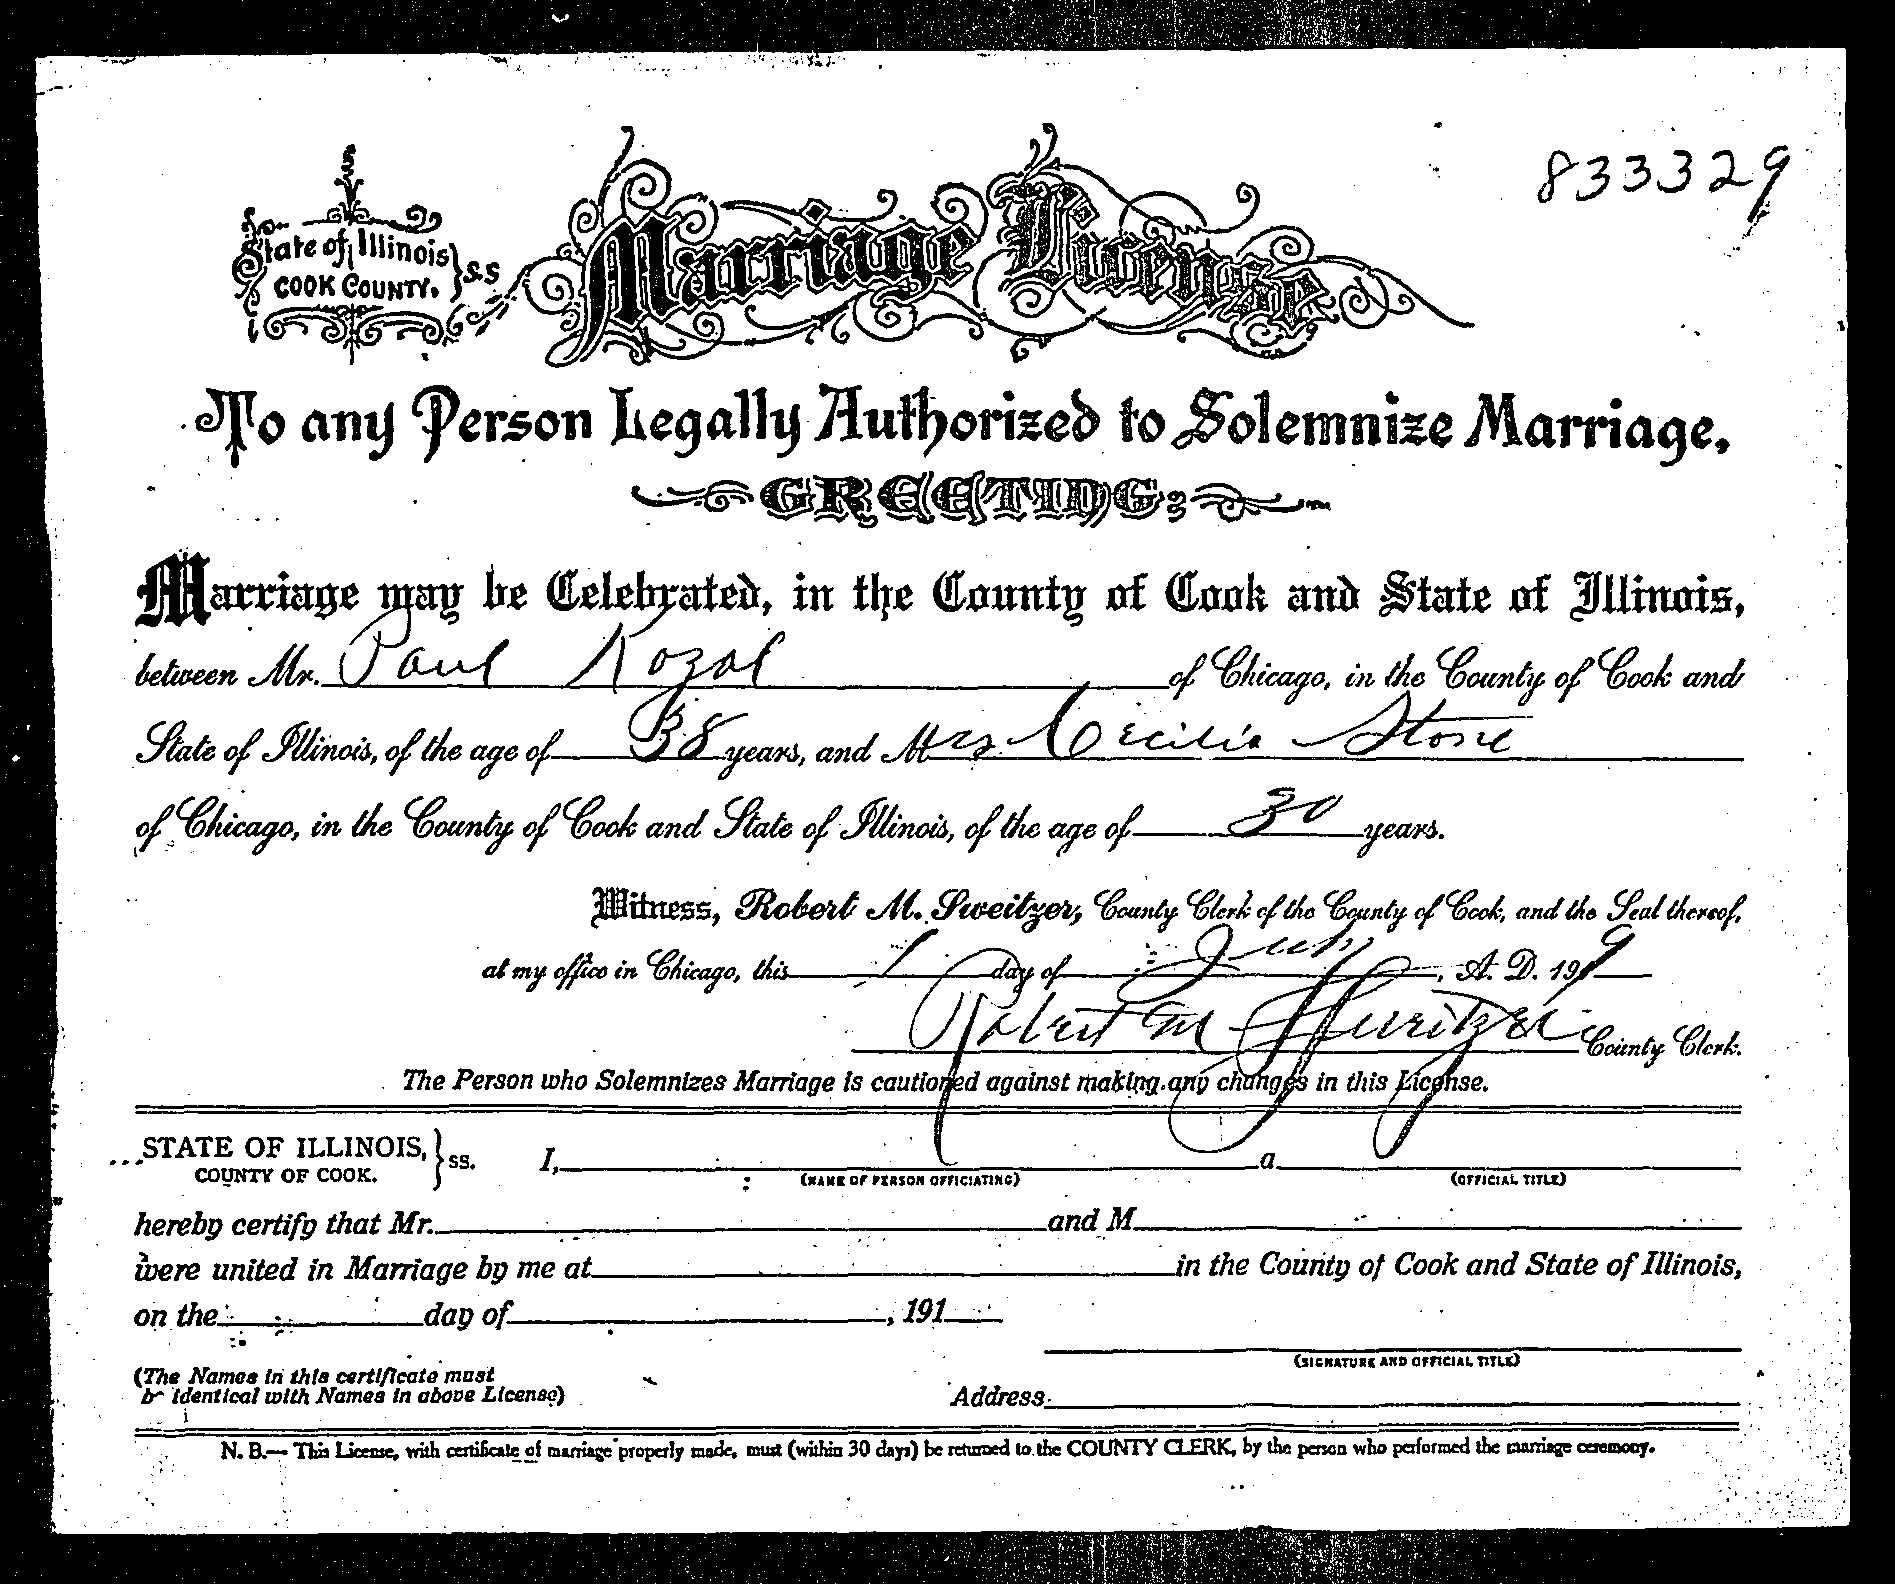 833329
State of Illinois } S.S
COOK COUNTY.
Marriage License
To any Person Legally Authorized to Solemnize Marriage,
GREETING:
Marriage may be Celebrated, in the County of Cook and State of Illinois,
between Mr. Paul Kozal of Chicago, in the County of Cook and
State of Illinois, of the age of 38 years, and Mrs. Cecilia Stone
of Chicago, in the County of Cook and State of Illinois, of the age of 30 years.
Witness, Robert M. Sweitzer, County Clerk of the County of Cook, and the Seal thereof,
at my office in Chicago, this 1 day of July, A. D. 1919
Robert M Sweitzer County Clerk.
The Person who Solemnizes Marriage is cautioned against making any changes in this License.
STATE OF ILLINOIS, } ss. I, a
COUNTY OF COOK.
(NAME OF PERSON OFFICIATING) (OFFICIAL TITLE)
hereby certify that Mr. and M
were united in Marriage by me at in the County of Cook and State of Illinois,
on the day of , 191
(SIGNATURE AND OFFICIAL TITLE)
(The Names in this certificate must
be identical with Names in above License)
Address
N. B.— This License, with certificate of marriage properly made, must (within 30 days) be returned to the COUNTY CLERK, by the person who performed the marriage ceremony.